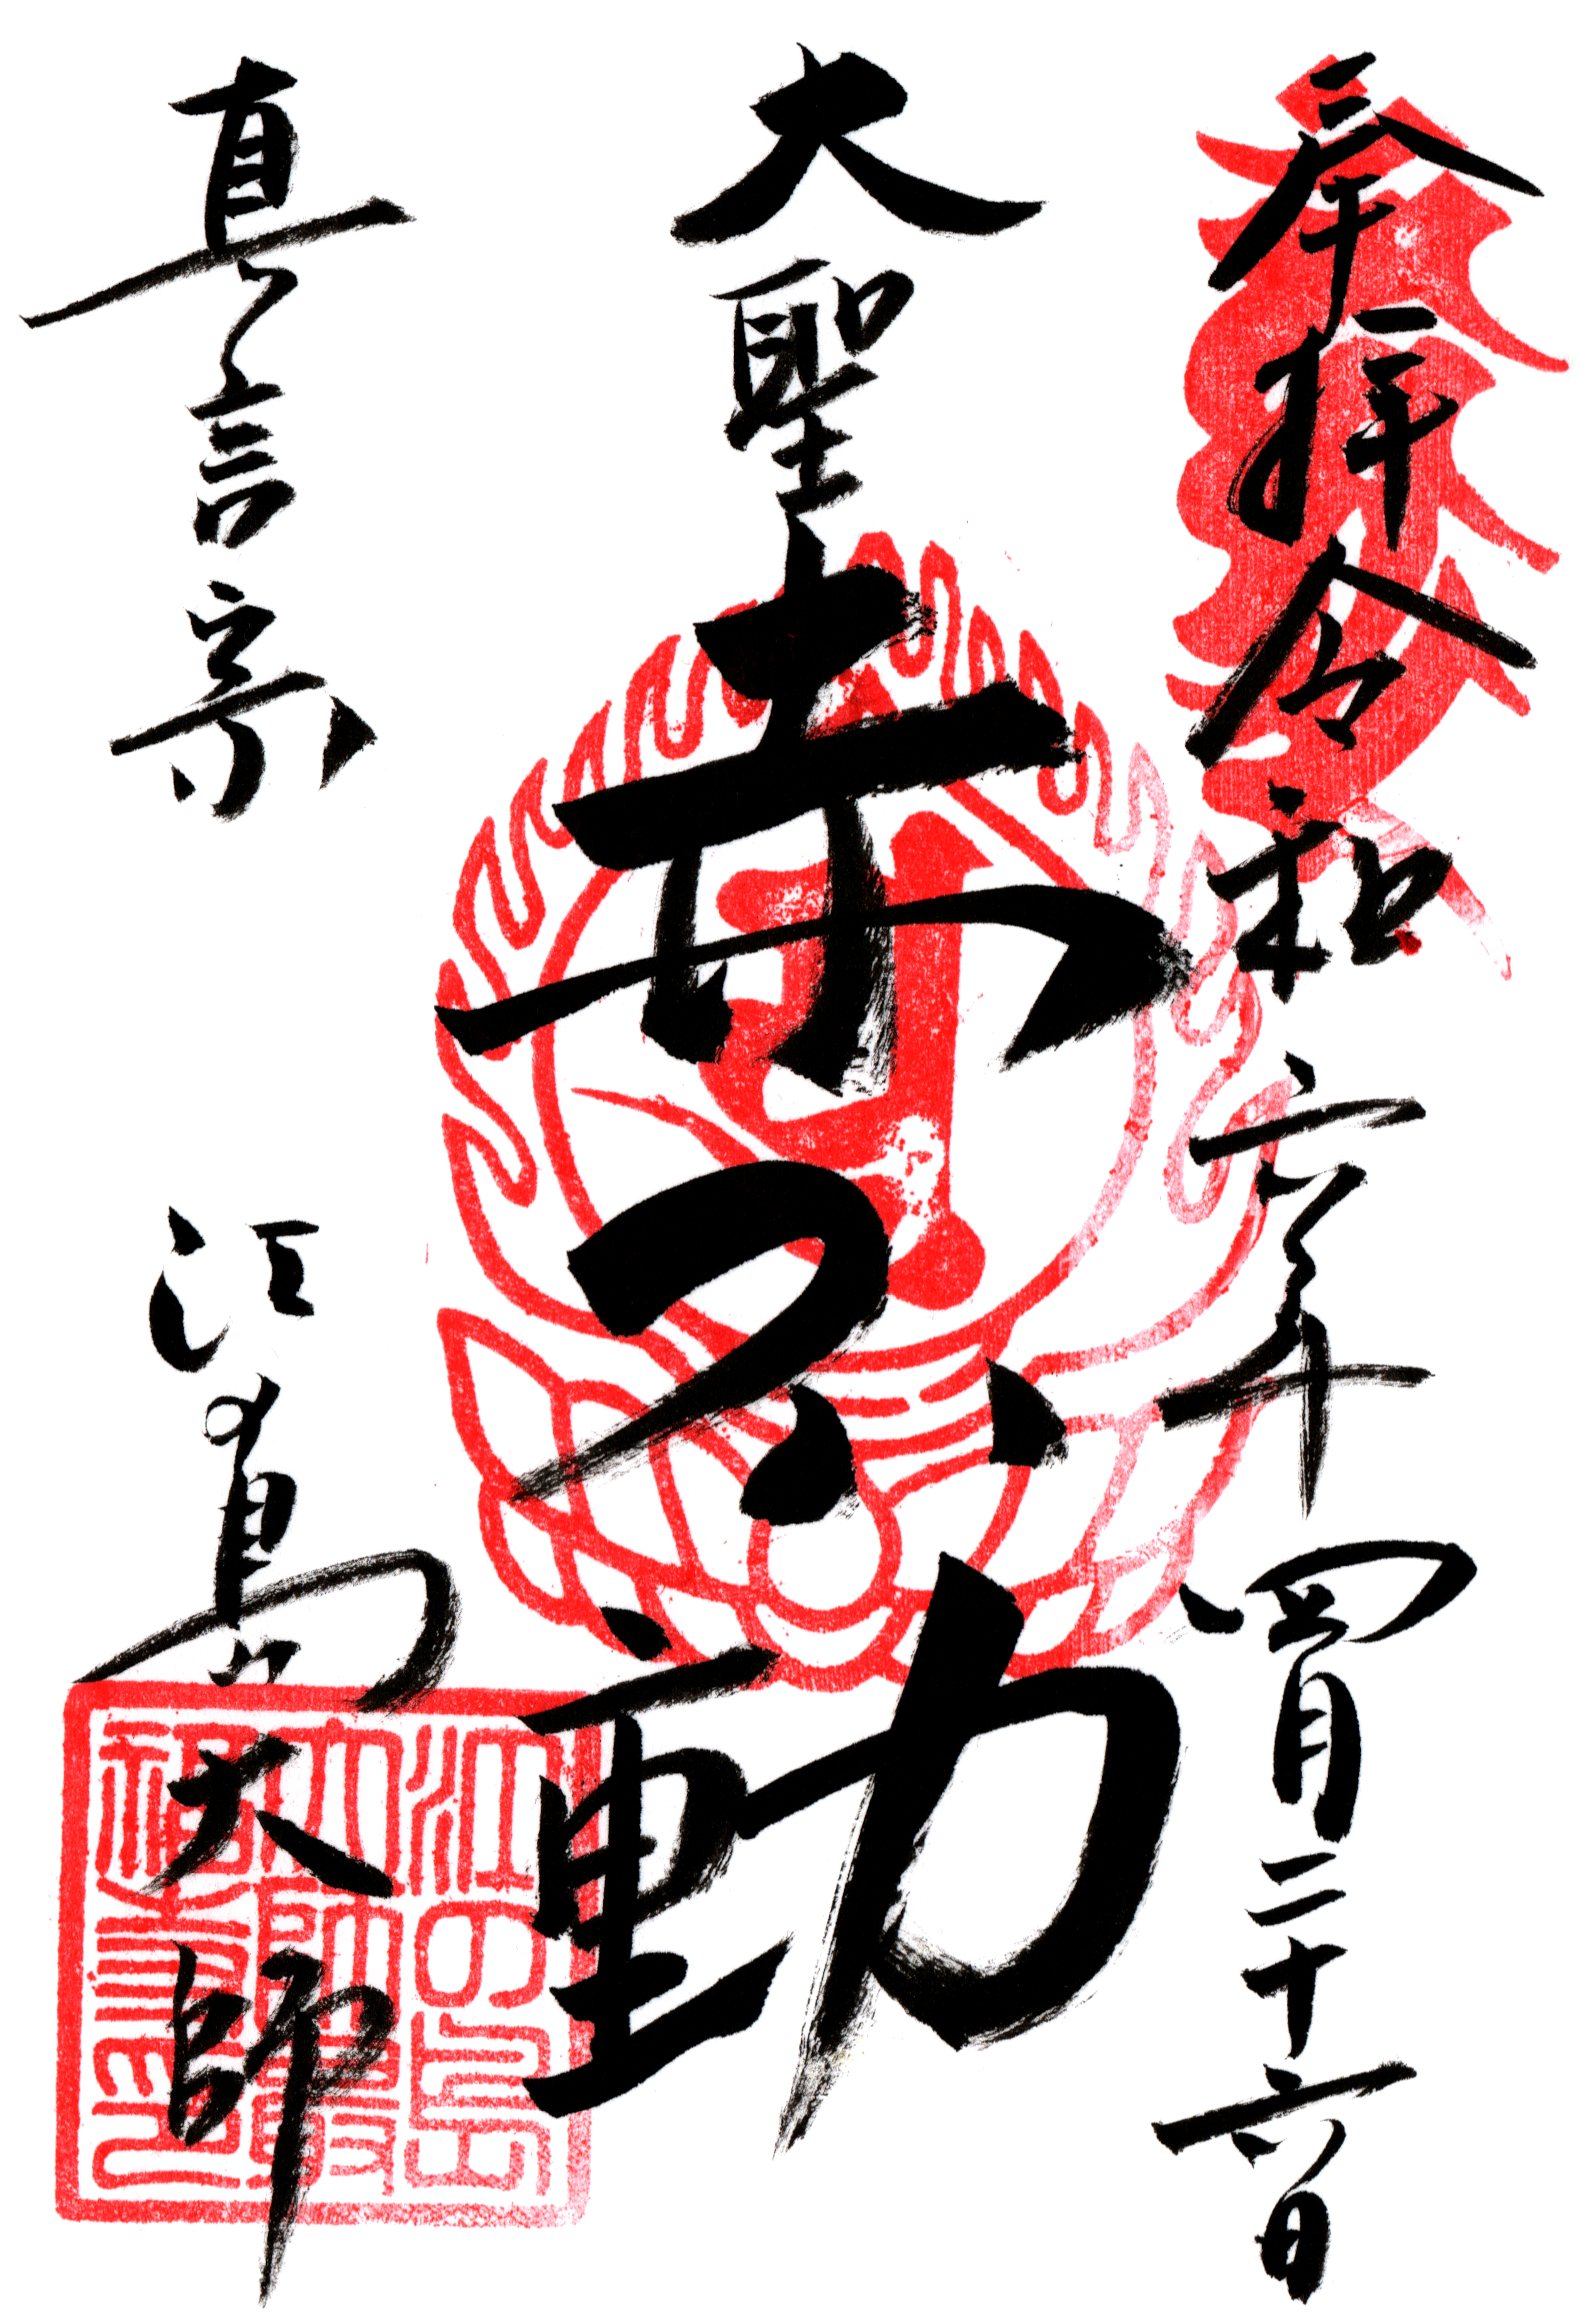 奉拝 令和六年四月二十六日
大聖赤不動
真言宗 江島大師
江の島
大師最
福寺印